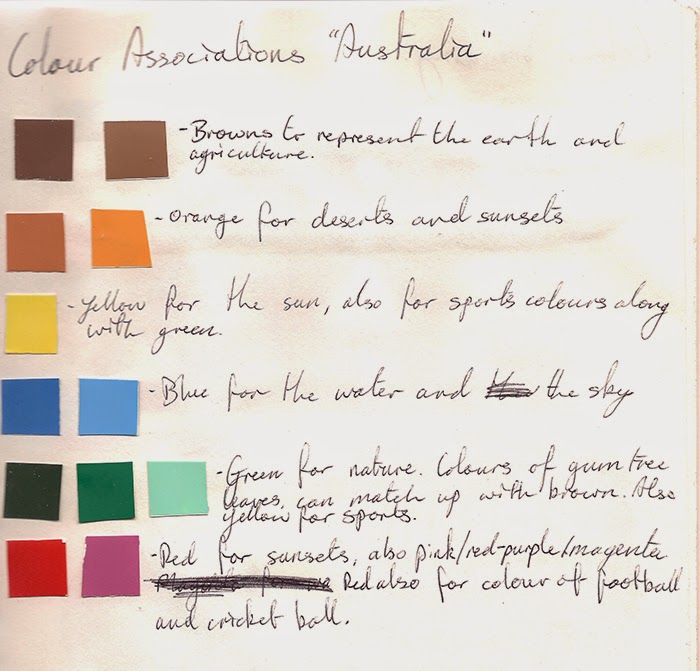 Colour Associations "Australia"
-Browns to represent the earth and
agriculture.
-Orange for deserts and sunsets
-Yellow for the sun, also for sports colours along
with green.
-Blue for the water and the sky
-Green for nature. Colours of gum tree
leaves, can match up with brown. Also
yellow for sports.
-Red for sunsets, also pink/red-purple/magenta
Red also for colour of football
and cricket ball.